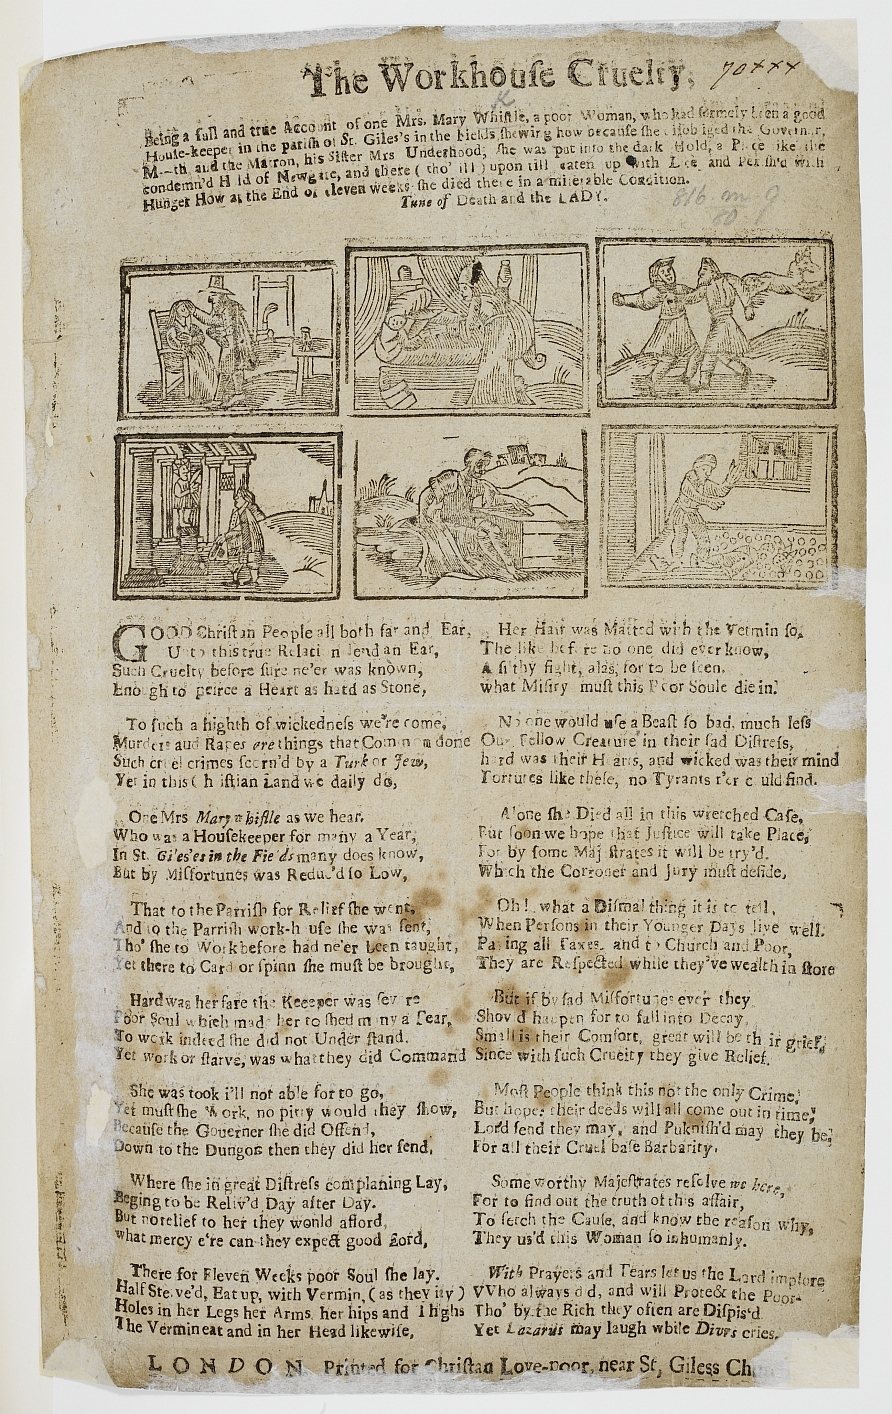 The Workhouſe Cruelty;
70
Being a full and true Account of one Mrs. Mary Whiſtle, a poor Woman, who had formely been a good
Houſe-keeper in the pariſh of St. Giles's in the Fields ſhewing how becauſe ſhe diſobliged the Governor,
M---th and the Matron, his Siſter Mrs Underhood; ſhe was put into the dark Hold, a Place like the
condemn'd Hold of Newgate, and there ( tho' ill ) upon till eaten up with Lice and Periſh'd with
Hunger How at the End of eleven weeks ſhe died there in a miſerable Condition.
Tune of Death and the LADY.
816. m. 9
80
GOOD Chriſtian People all both far and Ear,
Unto this true Relation lend an Ear,
Such Cruelty before ſure ne'er was known,
Enough to peirce a Heart as hard as Stone,
To ſuch a highth of wickedneſs we're come,
Murders aud Rapes are things that Common done
Such cruel crimes ſcorn'd by a Turk or Jew,
Yet in this Chriſtian Land we daily do,
One Mrs Mary whiſtle as we hear,
Who was a Houſekeeper for many a Year,
In St. Giles'es in the Fields many does know,
But by Miſfortunes was Reduc'd ſo Low,
That to the Parriſh for Relief ſhe went,
And to the Parriſh work-houſe ſhe was ſent,
Tho' ſhe to Work before had ne'er been taught,
Yet there to Card or ſpinn ſhe muſt be brought,
Hard was her fare the Keeeper was ſevere
Poor Soul which made her to ſhed many a Tear,
To work indeed ſhe did not Under ſtand.
Yet work or ſtarve, was what they did Command
She was took i'll not able for to go,
Yet muſt ſhe Work, no pitty would they ſhow,
Becauſe the Gouerner ſhe did Offend,
Down to the Dungon then they did her ſend,
Where ſhe in great Diſtreſs complaning Lay,
Beging to be Reliv'd Day after Day.
But no relief to her they wonld afford,
what mercy e're can they expect good Lord,
There for Eleven Weeks poor Soul ſhe lay.
Half Sterve'd, Eat up, with Vermin, (as they ſay)
Holes in her Legs her Arms, her hips and Thighs
The Vermin eat and in her Head likewiſe,
Her Hair was Matted with the Vermin ſo,
The like before no one did ever know,
A filthy ſight, alas, for to be ſeen.
what Miſiry muſt this Poor Soule die in.
No one would uſe a Beaſt ſo bad, much leſs
Our Fellow Creature in their ſad Diſtreſs,
hard was their Hearts, and wicked was their mind
Tortures like theſe, no Tyrants e'er could find.
A'one ſhe Died all in this wretched Caſe,
But ſoon we hope that Juſtice will take Place,
For by ſome Majſtrates it will be try'd.
Which the Corroner and Jury muſt deſide,
Oh! what a Diſmal thing it is to tell,
When Perſons in their Younger Days live well.
Paying all Taxes, and to Church and Poor,
They are Reſpected while they've wealth in ſtore
But if by ſad Miſfortunes ever they
Shov'd happen for to fall into Decay,
Small is their Comfort, great will be their grief,
Since with ſuch Crueity they give Relief.
Moſt People think this not the only Crime,
But hopes their deeds will all come out in time,
Lord ſend they may, and Pukniſh'd may they be,
For all their Cruel baſe Barbarity.
Some worthy Majeſtrates reſolve we here,
For to find out the truth of this affair,
To ſerch the Cauſe, and know the reaſon why,
They us'd this Woman ſo inhumanly.
With Prayers and Tears let us the Lord implore
VVho always did, and will Protect the Poor
Tho' by the Rich they often are Diſpis'd
Yet Lazarus may laugh while Dives cries.
LONDON Printed for Chriſtian Love-poor, near St, Giless Ch